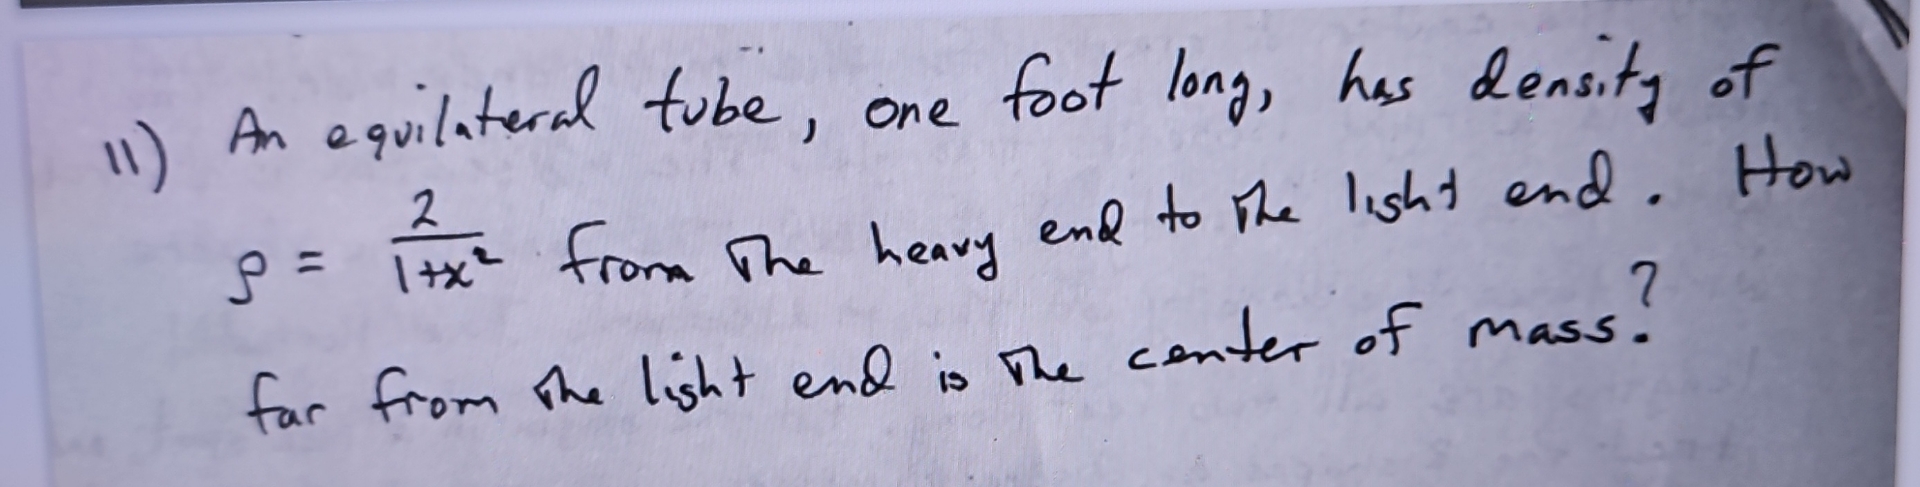 11) An equilateral tube, one foot long, has density of
ρ = 2/(1+x²) from The heavy end to The light end. How
far from The light end is The center of mass?